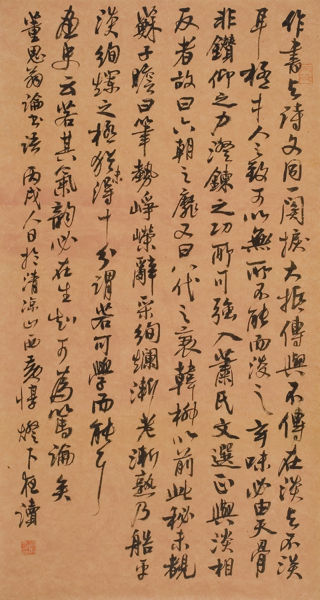 作書与詩文同一関捩大抵傳與不傳在淡与不淡
耳極才人之致可以無所不能而淡之玄味必由天骨
非鑽仰之力澄鍊之功所可強入蕭氏文選正與淡相
反者故曰六朝之靡又曰八代之衰韓柳以前此秘未覩
蘇子瞻曰筆勢崢嶸辭采絢爛漸老漸熟乃造平
淡絢爛之極猶未得十分謂若可學而能耳
畫史云若其氣韻必在生知可為篤論矣
董思翁論書語丙戌人日於清涼山西黃惇燈下夜讀